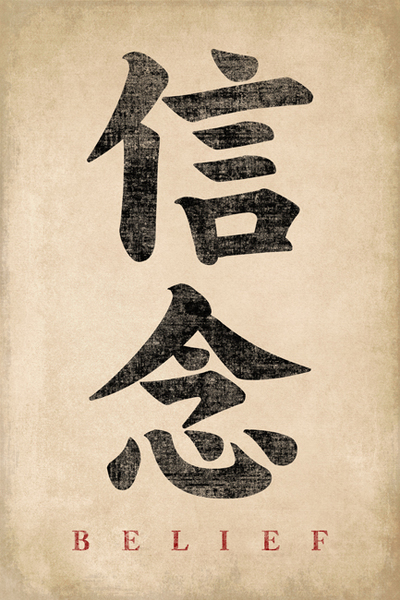 信念
BELIEF